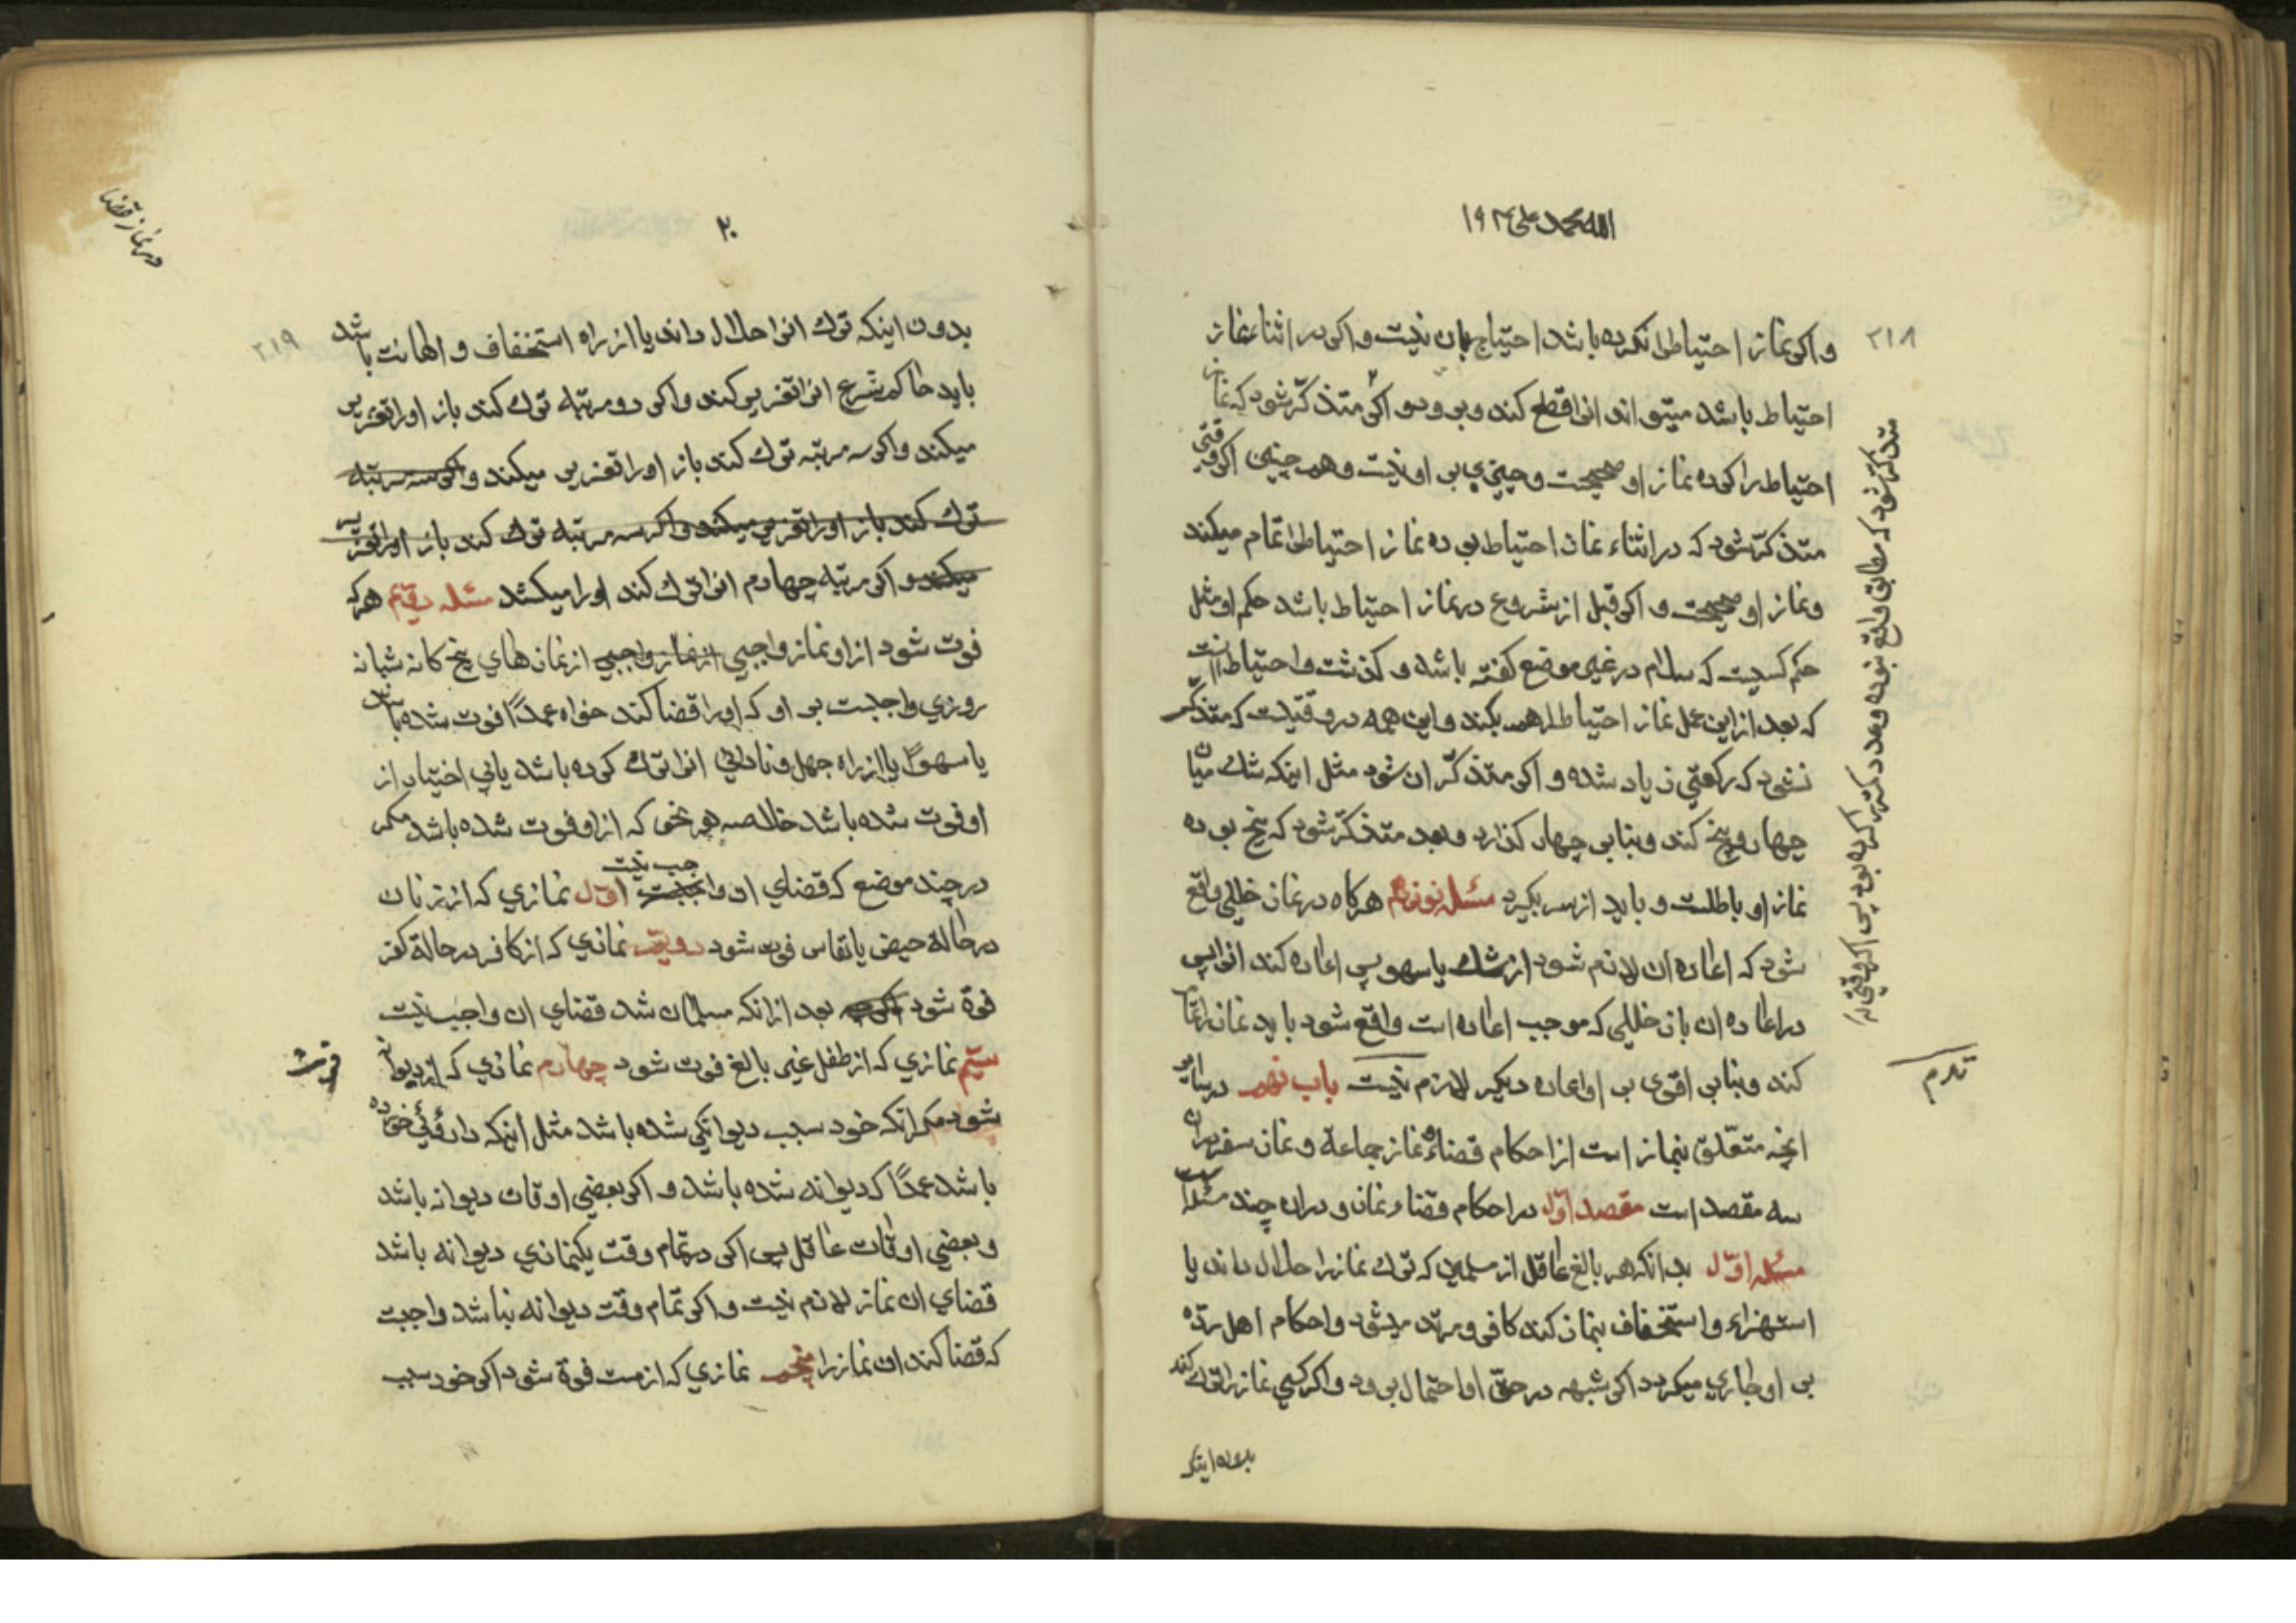 الله محمد علی ۱۹۲
۲۱۸
واکر نماز احتیاط را نکرده باشد احتیاج بان نیست واکر در اثناء نماز
احتیاط باشد میتواند انرا قطع کند و برود و اکر متذکّر شود که نماز
احتیاط را کرده نماز او صحیحست و چیزی بر او نیست و همچنین اکر وقتی
متذکّر شود که در اثناء نماز احتیاط بوده نماز احتیاط را تمام میکند
ونماز او صحیحست و اکر قبل از شروع در نماز احتیاط باشد حکم او مثل
حکم کسیست که سلام در غیر موضع کفته باشد و کذشت واحتیاط انست
که بعد از این عمل نماز احتیاط را هم بکند و این همه در وقتیست که متذکّر
نشود که رکعتی زیاد شده و اکر متذکّر ان شود مثل اینکه شک میان
چهار و پنج کند و بنا بر چهار کذارد وبعد متذکّر شود که پنج بوده
نماز او باطلست و باید از سر بکیرد مسئله نوزدهم هرکاه در نماز خللی واقع
شود که اعاده ان لازم شود از شک یا سهو پس اعاده کند انرا پس
در اعاده ان باز خللی که موجب اعاده است واقع شود باید نماز را تمام
کند وبنا بر اقوی بر او اعاده دیکر لازم نیست باب نهم در سایر
انچه متعلّق بنماز است از احکام قضاء و نماز جماعة و نماز سفر و دران
سه مقصد است مقصد اوّل در احکام قضاء نماز و دران چند مسئله است
مسئله اوّل بدانکه هر بالغ عاقل از مسلمین که ترک نماز را حلال داند یا
استهزاء و استخفاف بنماز کند کافر و مرتد میشود واحکام اهل ردّه
بر او جاری میکردد اکر شبهه در حقّ او احتمال برود واکر کسی نماز را ترک کند
بدون اینکه
متذکّر شود که مطابق واقع نبوده و عدد رکعت
۲۰
در نماز قضا
۲۱۹
بدون اینکه ترک انرا حلال داند یا از راه استخفاف و اهانت باشد
باید حاکم شرع انرا تعزیر کند واکر دو مرتبه ترک کند باز او را تعزیر
میکند واکر سه مرتبه ترک کند باز او را تعزیر میکند واکر سه مرتبه
ترک کند باز او را تعزیر میکند واکر سه مرتبه ترک کند باز او را تعزیر
میکند و اکر مرتبه چهارم انرا ترک کند او را میکشد مسئله دویّم هرکه
فوت شود از او نماز واجبی از نماز واجبی از نمازهای پنج کانه شبانه
روزی واجبست بر او که او را قضا کند خواه عمدًا فوت شده باشد
یا سهوًا یا از راه جهل و نادانی انرا ترک کرده باشد یا بی اختیار از
او فوت شده باشد خلاصه هر نحو که از او فوت شده باشد مکر
در چند موضع که قضای ان واجب نیست اوّل نمازی که از زنان
در حالة حیض یا نفاس فوت شود دویّم نمازی که از کافر در حالة کفر
فوة شود بعد از انکه مسلمان شد قضای ان واجب نیست
سیّم نمازی که از طفل غیر بالغ فوت شود چهارم نمازی که از دیوانه
فوت
شود مکر انکه خود سبب دیوانکی شده باشد مثل اینکه داروئی خورده
باشد عمدًا که دیوانه شده باشد و اکر بعضی اوقات دیوانه باشد
و بعضی اوقات عاقل پس اکر در تمام وقت یکنمازی دیوانه باشد
قضای ان نماز لازم نیست و اکر تمام وقت دیوانه نباشد واجبست
که قضا کند ان نماز را پنجم نمازی که از مست فوة شود اکر خود سبب